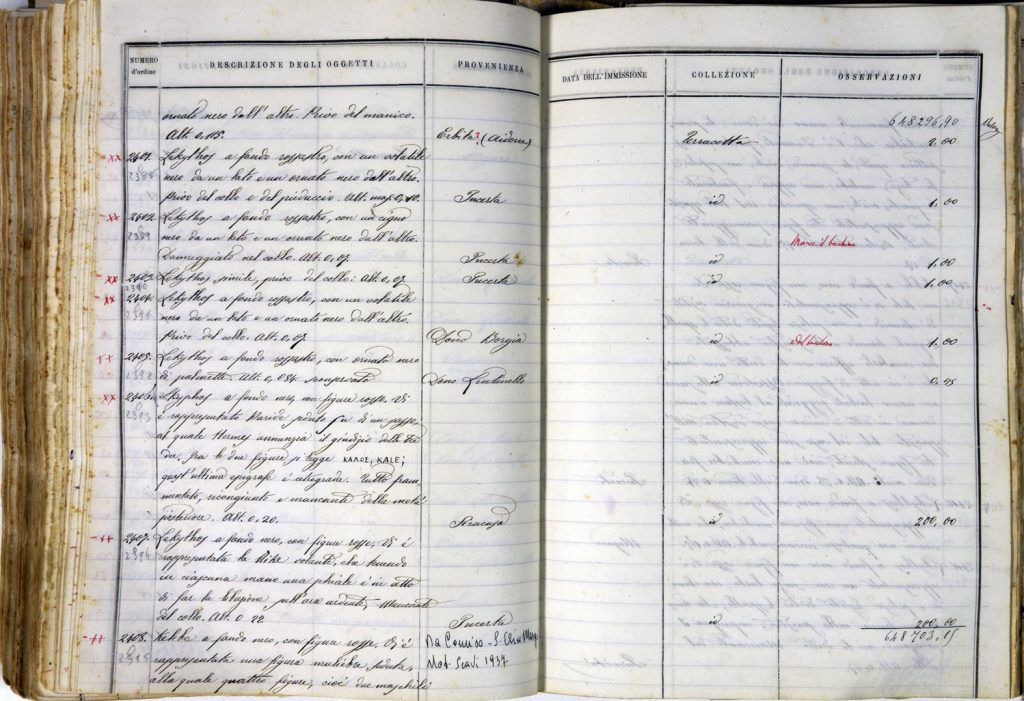 NUMERO d'ordine DESCRIZIONE DEGLI OGGETTI PROVENIENZA DATA DELL'IMMISSIONE COLLEZIONE OSSERVAZIONI
648296,90
ornato nero dall'altro. Privo del manico.
Alt. 0,115. Erbita? (Aidone) Terracotta 2.00
xx 2401. Lekythos a fondo rossastro, con un volatile
2388 nero da un lato e un ornato nero dall'altro.
Privo del collo e del pieduccio. Alt. mass. 0,10. Incerta id 1.00
xx 2402. Lekythos a fondo rossastro, con un cigno
2389 nero da un lato e un ornato nero dall'altro. Manca il bucchino
Danneggiato nel collo. Alt. 0,07. Incerta id 1.00
xx 2403. Lekythos simile, privo del collo: Alt. 0,07. Incerta id 1.00
2390
xx 2404. Lekythos a fondo rossastro, con un volatile
2391 nero da un lato e un ornato nero dall'altro.
Privo del collo. Alt. 0,07. Dono Borgia id 1.00
xx 2405. Lekythos a fondo rossastro, con ornato nero
2392 di palmette. Alt. 0,084 Dono Lentinello id 0,15
xx 2406. Skyphos a fondo nero, con figure rosse. Vi
2393 è rappresentato Paride seduto su di un sasso
al quale Hermes annunzia il giudizio delle
Fra le due figure si legge ΚΑΛΟΣ, KALE;
quest'ultima epigrafe è retrograda. Tutto fram
mentato, ricongiunto e mancante della metà
posteriore. Alt. 0,20. Siracusa id 200,00
xx 2407. Lekythos a fondo nero, con figure rosse. Vi è
2394 rappresentata la Nike volante, che tenendo
in ciascuna mano una phiale è in atto
di far la libazione sull'ara ardente. Mancante
del collo. Alt. 0,22. Incerta id 200,00
648703,15
xx 2408. a fondo nero, con figure rosse. Vi è Da Comiso - S.
2395 rappresentata una figura muliebre seduta, Not. Scavi 1937
alla quale quattro figure, cioè due maschili